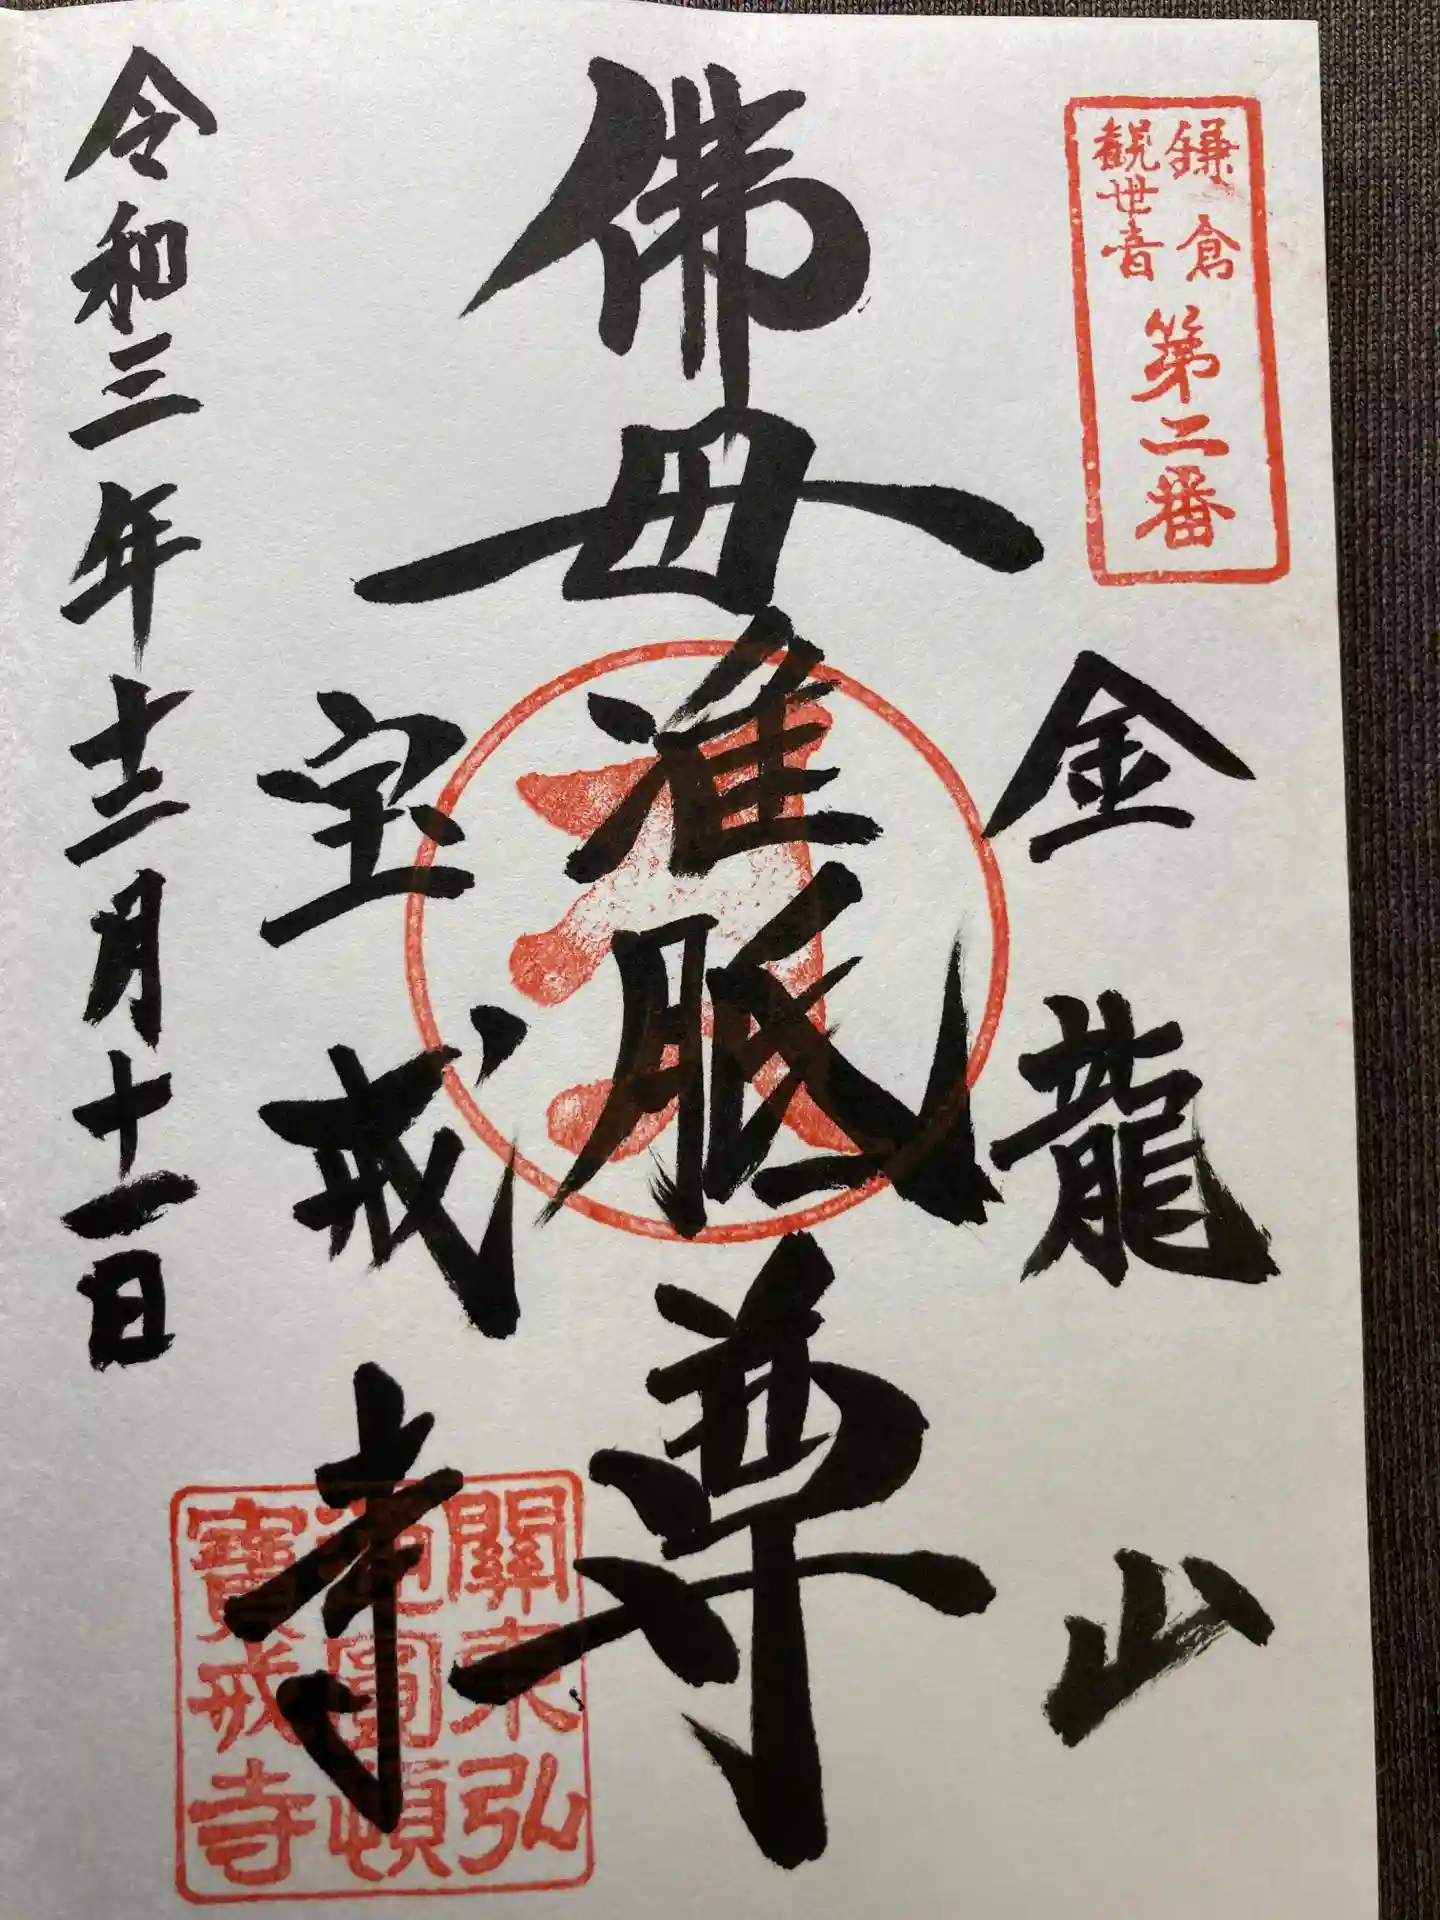 鎌倉
観世音
第二番
金龍山
佛母准胝尊
宝戒寺
關東弘
通圓頓
寶戒寺
令和三年十二月十一日